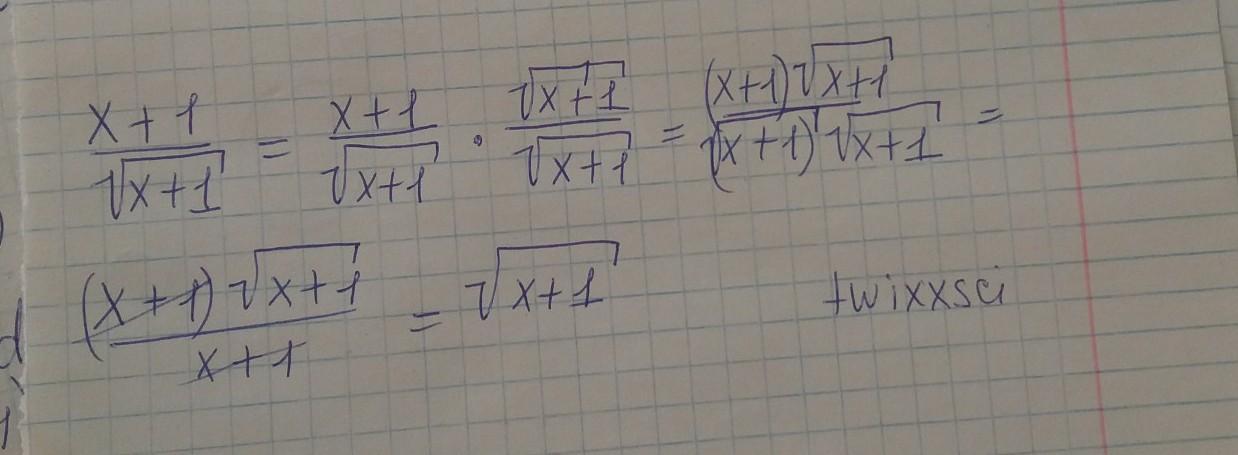 x+1/√(x+1) = x+1/√(x+1) · √(x+1)/√(x+1) = (x+1)√(x+1)/√(x+1) √(x+1) =
(x+1)√(x+1)/x+1 = √(x+1)
twixxsci